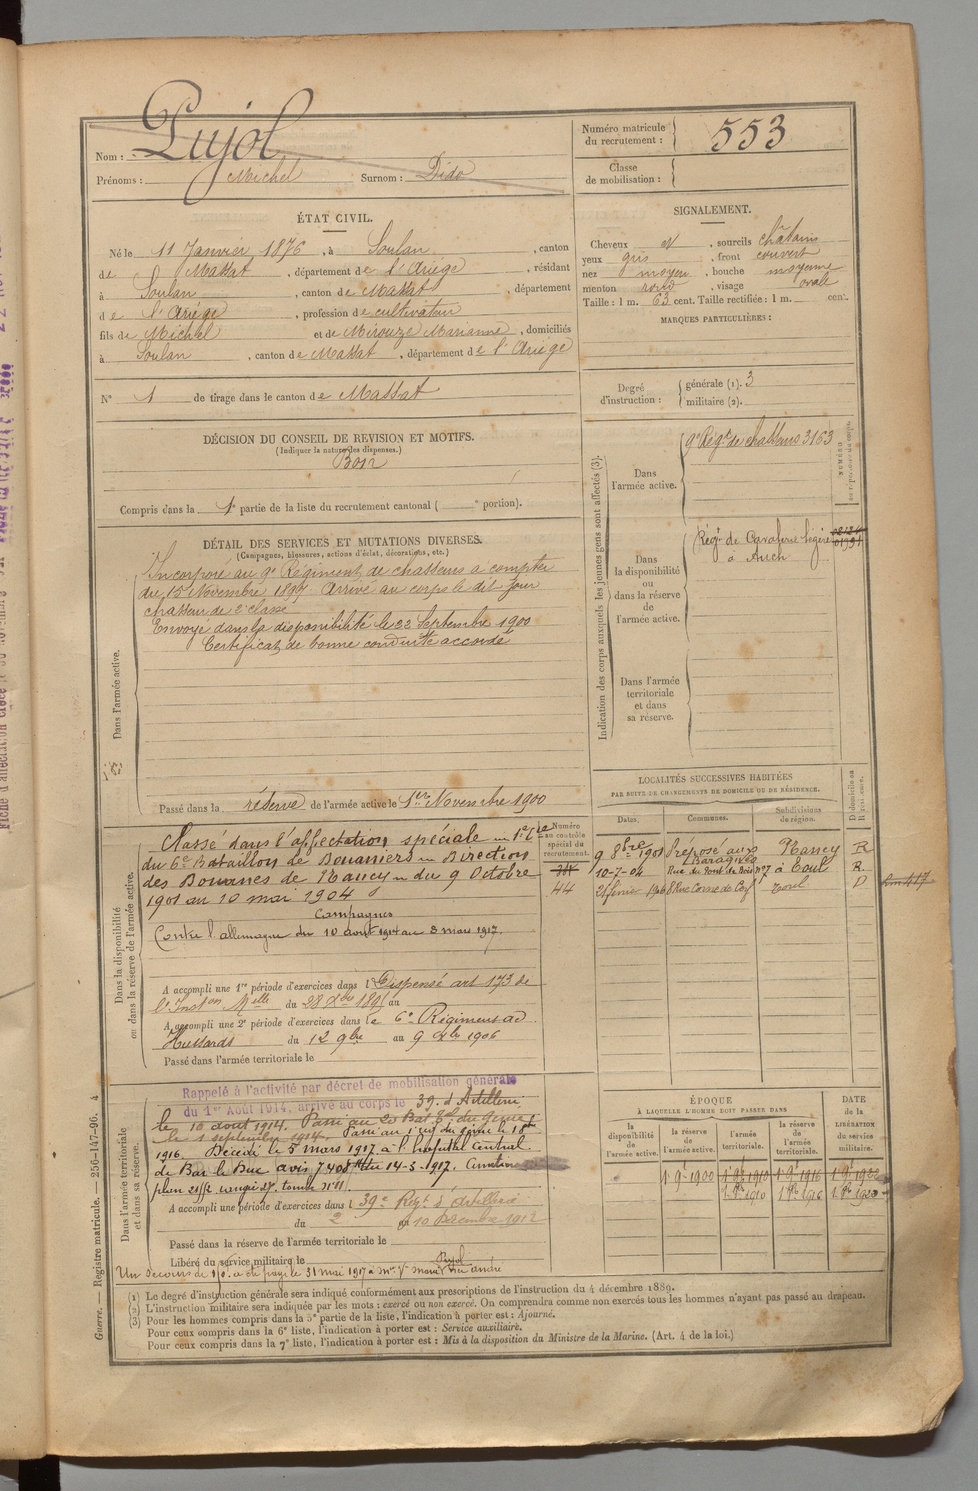 Nom : Pujol
Prénoms : Michel Surnom : Dido
Numéro matricule du recrutement : 553
Classe de mobilisation :
ÉTAT CIVIL.
Né le 11 Janvier 1876, à Soulan, canton
de Massat, département de l'Ariège, résidant
à Soulan, canton de Massat, département
de l'Ariège, profession de cultivateur
fils de Michel et de Mirouze Marianne, domiciliés
à Soulan, canton de Massat, département de l'Ariège
N° 1 de tirage dans le canton de Massat
SIGNALEMENT.
Cheveux N, sourcils châtains
yeux gris, front couvert
nez moyen, bouche moyenne
menton rond, visage ovale
Taille : 1 m. 63 cent. Taille rectifiée : 1 m. cent.
MARQUES PARTICULIÈRES :
Degré d'instruction : générale (1). 3
militaire (2).
DÉCISION DU CONSEIL DE REVISION ET MOTIFS.
(Indiquer la nature des dispenses.)
Bon
Compris dans la 1e partie de la liste du recrutement cantonal ( e portion).
DÉTAIL DES SERVICES ET MUTATIONS DIVERSES.
(Campagnes, blessures, actions d'éclat, décorations, etc.)
Dans l'armée active.
Incorporé au 9e Régiment de chasseurs à compter
du 15 Novembre 1897. Arrivé au corps le dit jour
chasseur de 2e classe
Envoyé dans la disponibilité le 22 Septembre 1900
Certificat de bonne conduite accordé
Passé dans la réserve de l'armée active le 1er Novembre 1900
Indication des corps auxquels les jeunes gens sont affectés (3).
Dans l'armée active.
9e Régt de chasseurs 3163
Dans la disponibilité ou dans la réserve de l'armée active.
Régt de Cavalerie légère
à Auch
Dans l'armée territoriale et dans sa réserve.
Dans la disponibilité ou dans la réserve de l'armée active.
Classé dans l'affectation spéciale
du 6e Bataillon de Douaniers Direction
des Douanes de Nancy du 9 Octobre
1901 au 10 mai 1904
Campagnes
Contre l'allemagne du 10 août 1914 au 5 mars 1917.
A accompli une 1re période d'exercices dans l Dispensé art 173 de
l'Inston Melle du 28 Xbre 1895 au
A accompli une 2e période d'exercices dans le 6e Régiment de
Hussards du 12 9bre au 9 Xbre 1906
Passé dans l'armée territoriale le
Numéro au contrôle spécial du recrutement.
44
LOCALITÉS SUCCESSIVES HABITÉES
PAR SUITE DE CHANGEMENTS DE DOMICILE OU DE RÉSIDENCE.
Dates. Communes. Subdivisions de région. D domicile ou R résidence.
9 8bre 1901 Préposé aux Baragives Nancy R
10-7-04 Rue du Pont de Bois n° 7 à Toul R
21 février 1906 8 Rue Toul D
Dans l'armée territoriale et dans sa réserve.
Rappelé à l'activité par décret de mobilisation générale
du 1er Août 1914, arrivé au corps le 39e d'Artillerie
le 10 août 1914. Passé au 20 Bat du génie
le 1 septembre 1914. Passé au 1er régt du génie le 18
1916. Décédé le 5 mars 1917 à l'hôpital Central
de Bar le Duc avis 7408 du 14-3-1917.
A accompli une période d'exercices dans l 39e Régt d'Artillerie
du 2 au 10 Décembre 1912
Passé dans la réserve de l'armée territoriale le
Libéré du service militaire le
Un secours de 150 a été payé le 31 mai 1917 à Mme Vve Pujol
ÉPOQUE
À LAQUELLE L'HOMME DOIT PASSER DANS
la disponibilité de l'armée active. la réserve de l'armée active. l'armée territoriale. la réserve de l'armée territoriale.
DATE de la LIBÉRATION du service militaire.
1 9e 1900 1 9e 1910 1 9e 1916 1 9e 1922
1. 8e 1910 1 8e 1916 1. 8e 1920
(1) Le degré d'instruction générale sera indiqué conformément aux prescriptions de l'instruction du 4 décembre 1889.
(2) L'instruction militaire sera indiquée par les mots : exercé ou non exercé. On comprendra comme non exercés tous les hommes n'ayant pas passé au drapeau.
(3) Pour les hommes compris dans la 5e partie de la liste, l'indication à porter est : Ajourné.
Pour ceux compris dans la 6e liste, l'indication à porter est : Service auxiliaire.
Pour ceux compris dans la 7e liste, l'indication à porter est : Mis à la disposition du Ministre de la Marine. (Art. 4 de la loi.)
Guerre. — Registre matricule. — 256-147-96. 4